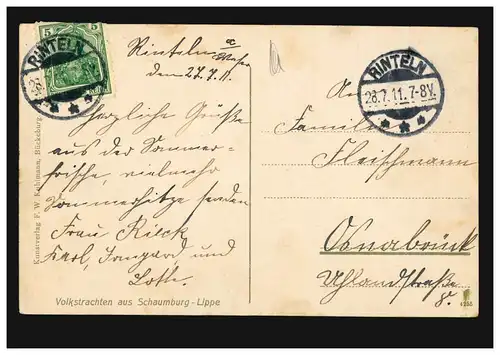 5
RINTELN
Rinteln a/Weser
den 27.7.11.
Herzliche Grüße
aus der Sommer-
frische, vielmehr
Sommerhitze senden
Frau Rieck
Karl, Irmgard und
Lotte.
Volkstrachten aus Schaumburg-Lippe
Kunstverlag F. W. Kohlmann, Bückeburg.
RINTELN
28.7.11.7-8V.
An
Familie
Fleischmann
Osnabrück
Uhlandstraße
8.